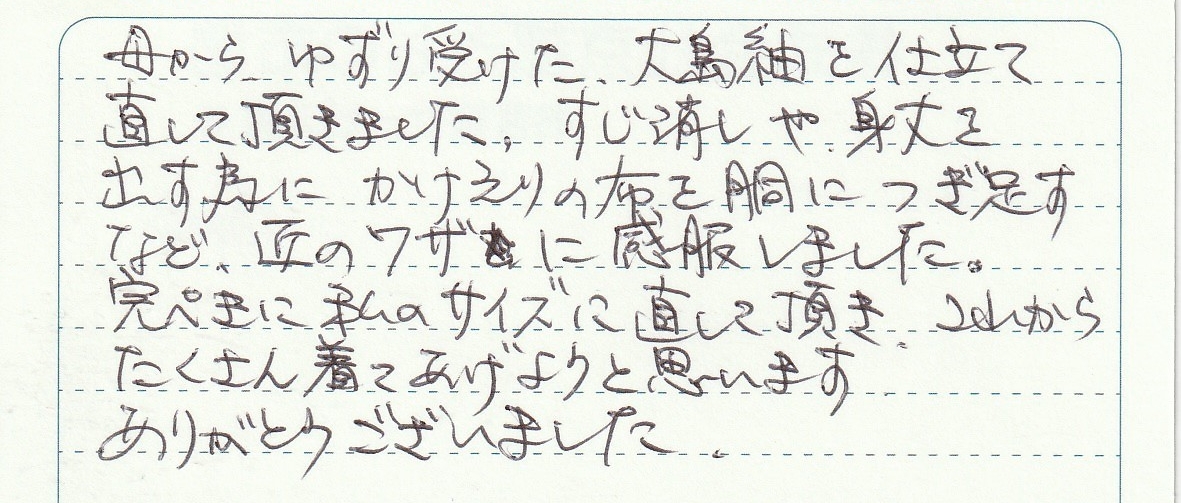 母から、ゆずり受けた、大島紬を仕立て
直して頂きました。すじ消しや、身丈を
出す為に かけえりの布を胴につぎ足す
など、匠のワザに感服しました。
完ぺきに私のサイズに直して頂き、これから
たくさん着てあげようと思います
ありがとうございました。